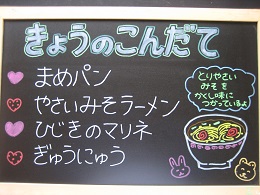 きょうのこんだて
まめパン
やさいみそラーメン
ひじきのマリネ
ぎゅうにゅう
とりやさい
みそを
かくし味に
つかっているよ